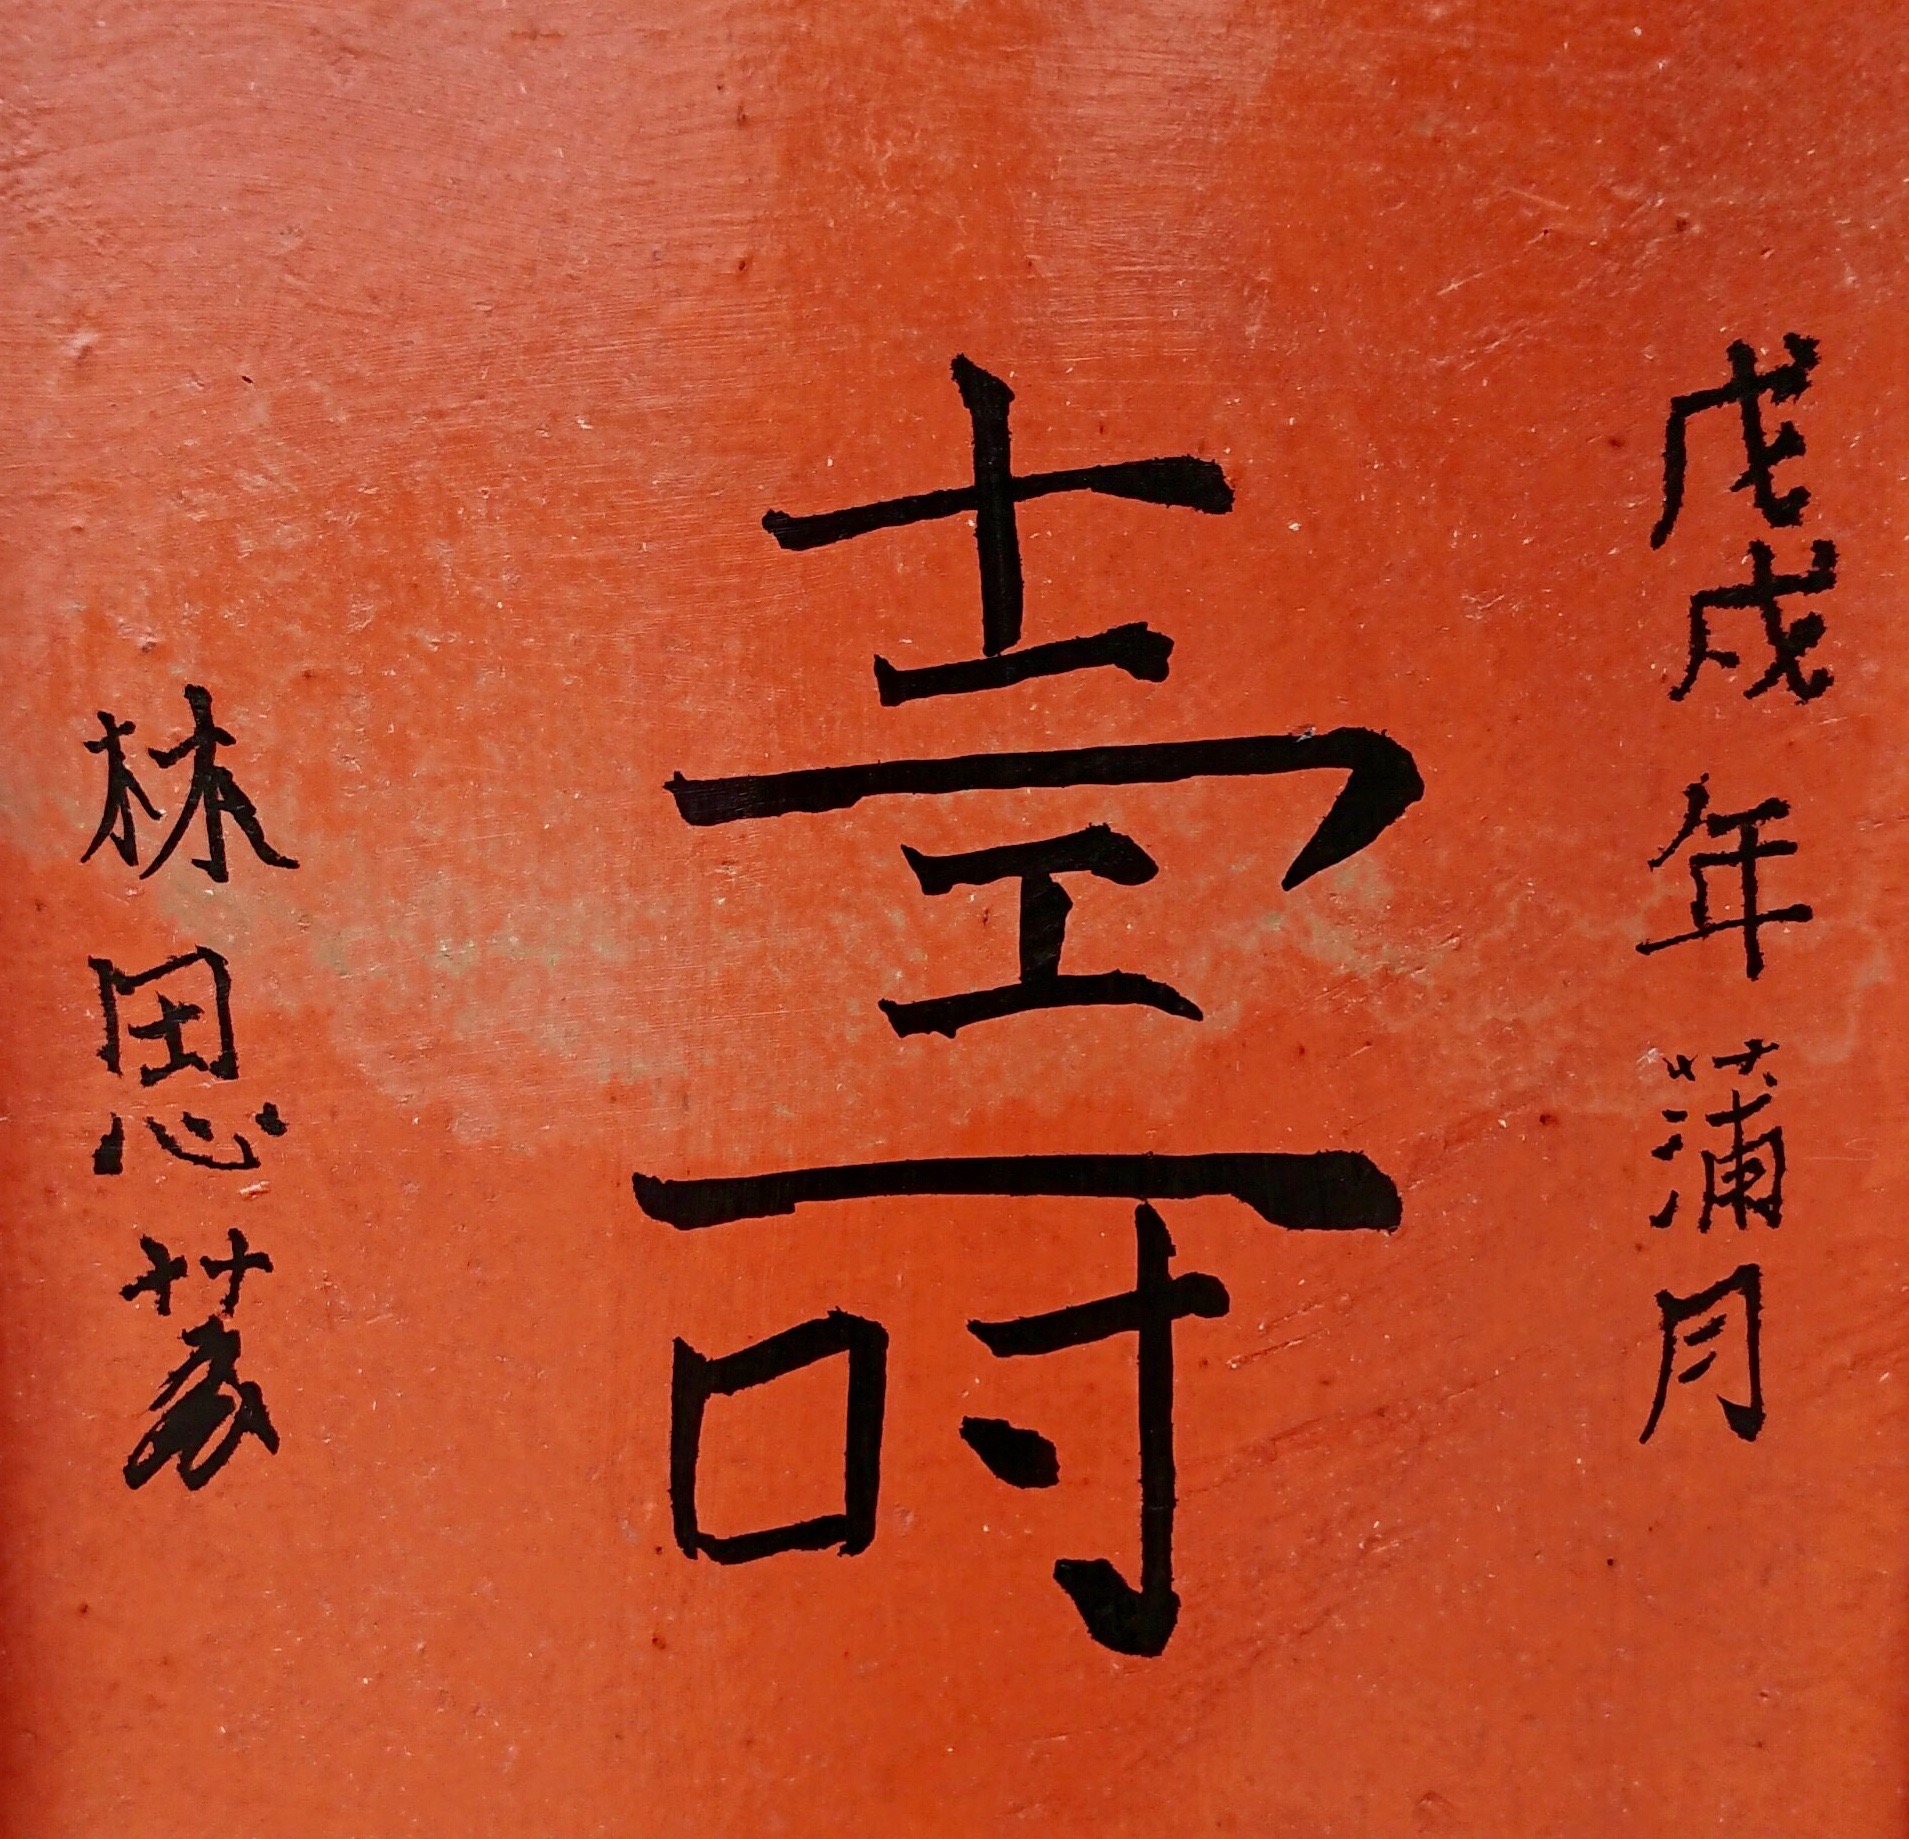 戊戌年蒲月
壽
林恩篆